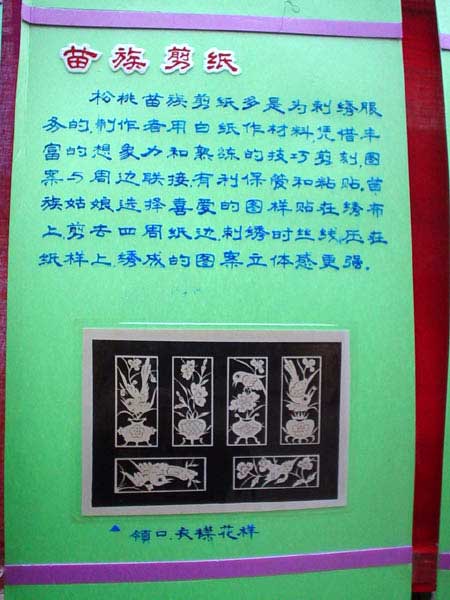 苗族剪纸
松桃苗族剪纸多是为刺绣服
务的,制作者用白纸作材料,凭借丰
富的想象力和熟练的技巧剪刻,图
案与周边联接,有利保管和粘贴,苗
族姑娘选择喜爱的图样贴在绣布
上,剪去四周纸边,刺绣时丝线压在
纸样上,绣成的图案立体感更强。
领口、衣襟花样